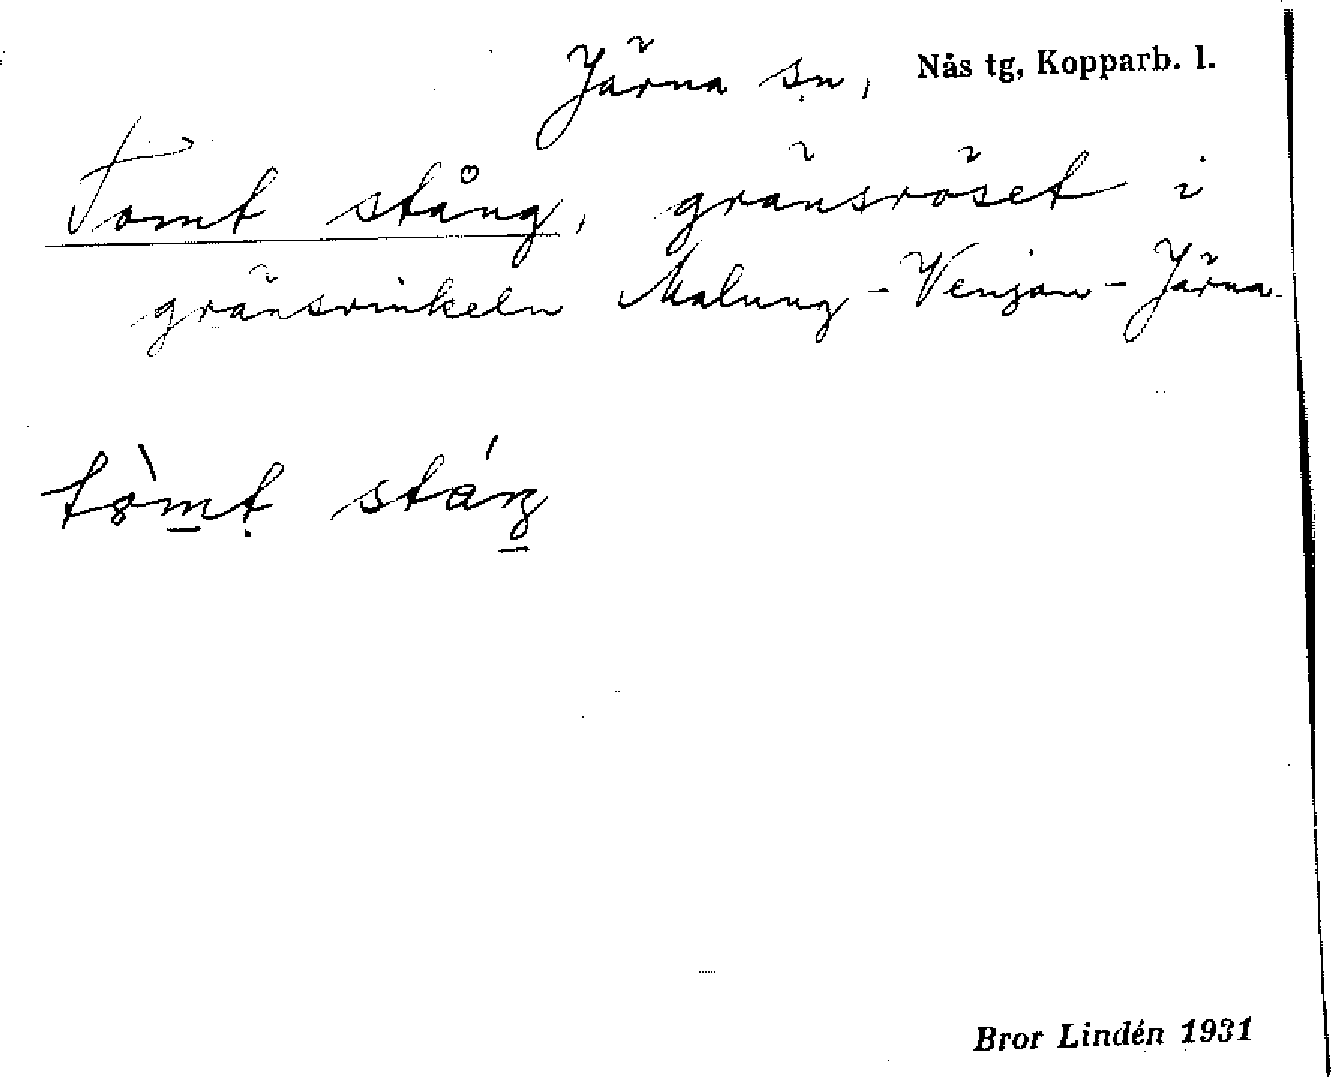 Järna sn, Nås tg, Kopparb. l.
Tomt stång, gränsröset i
gränsvinkeln Malung - Venjan - Järna.
tòmt stáŋ
Bror Lindén 1931